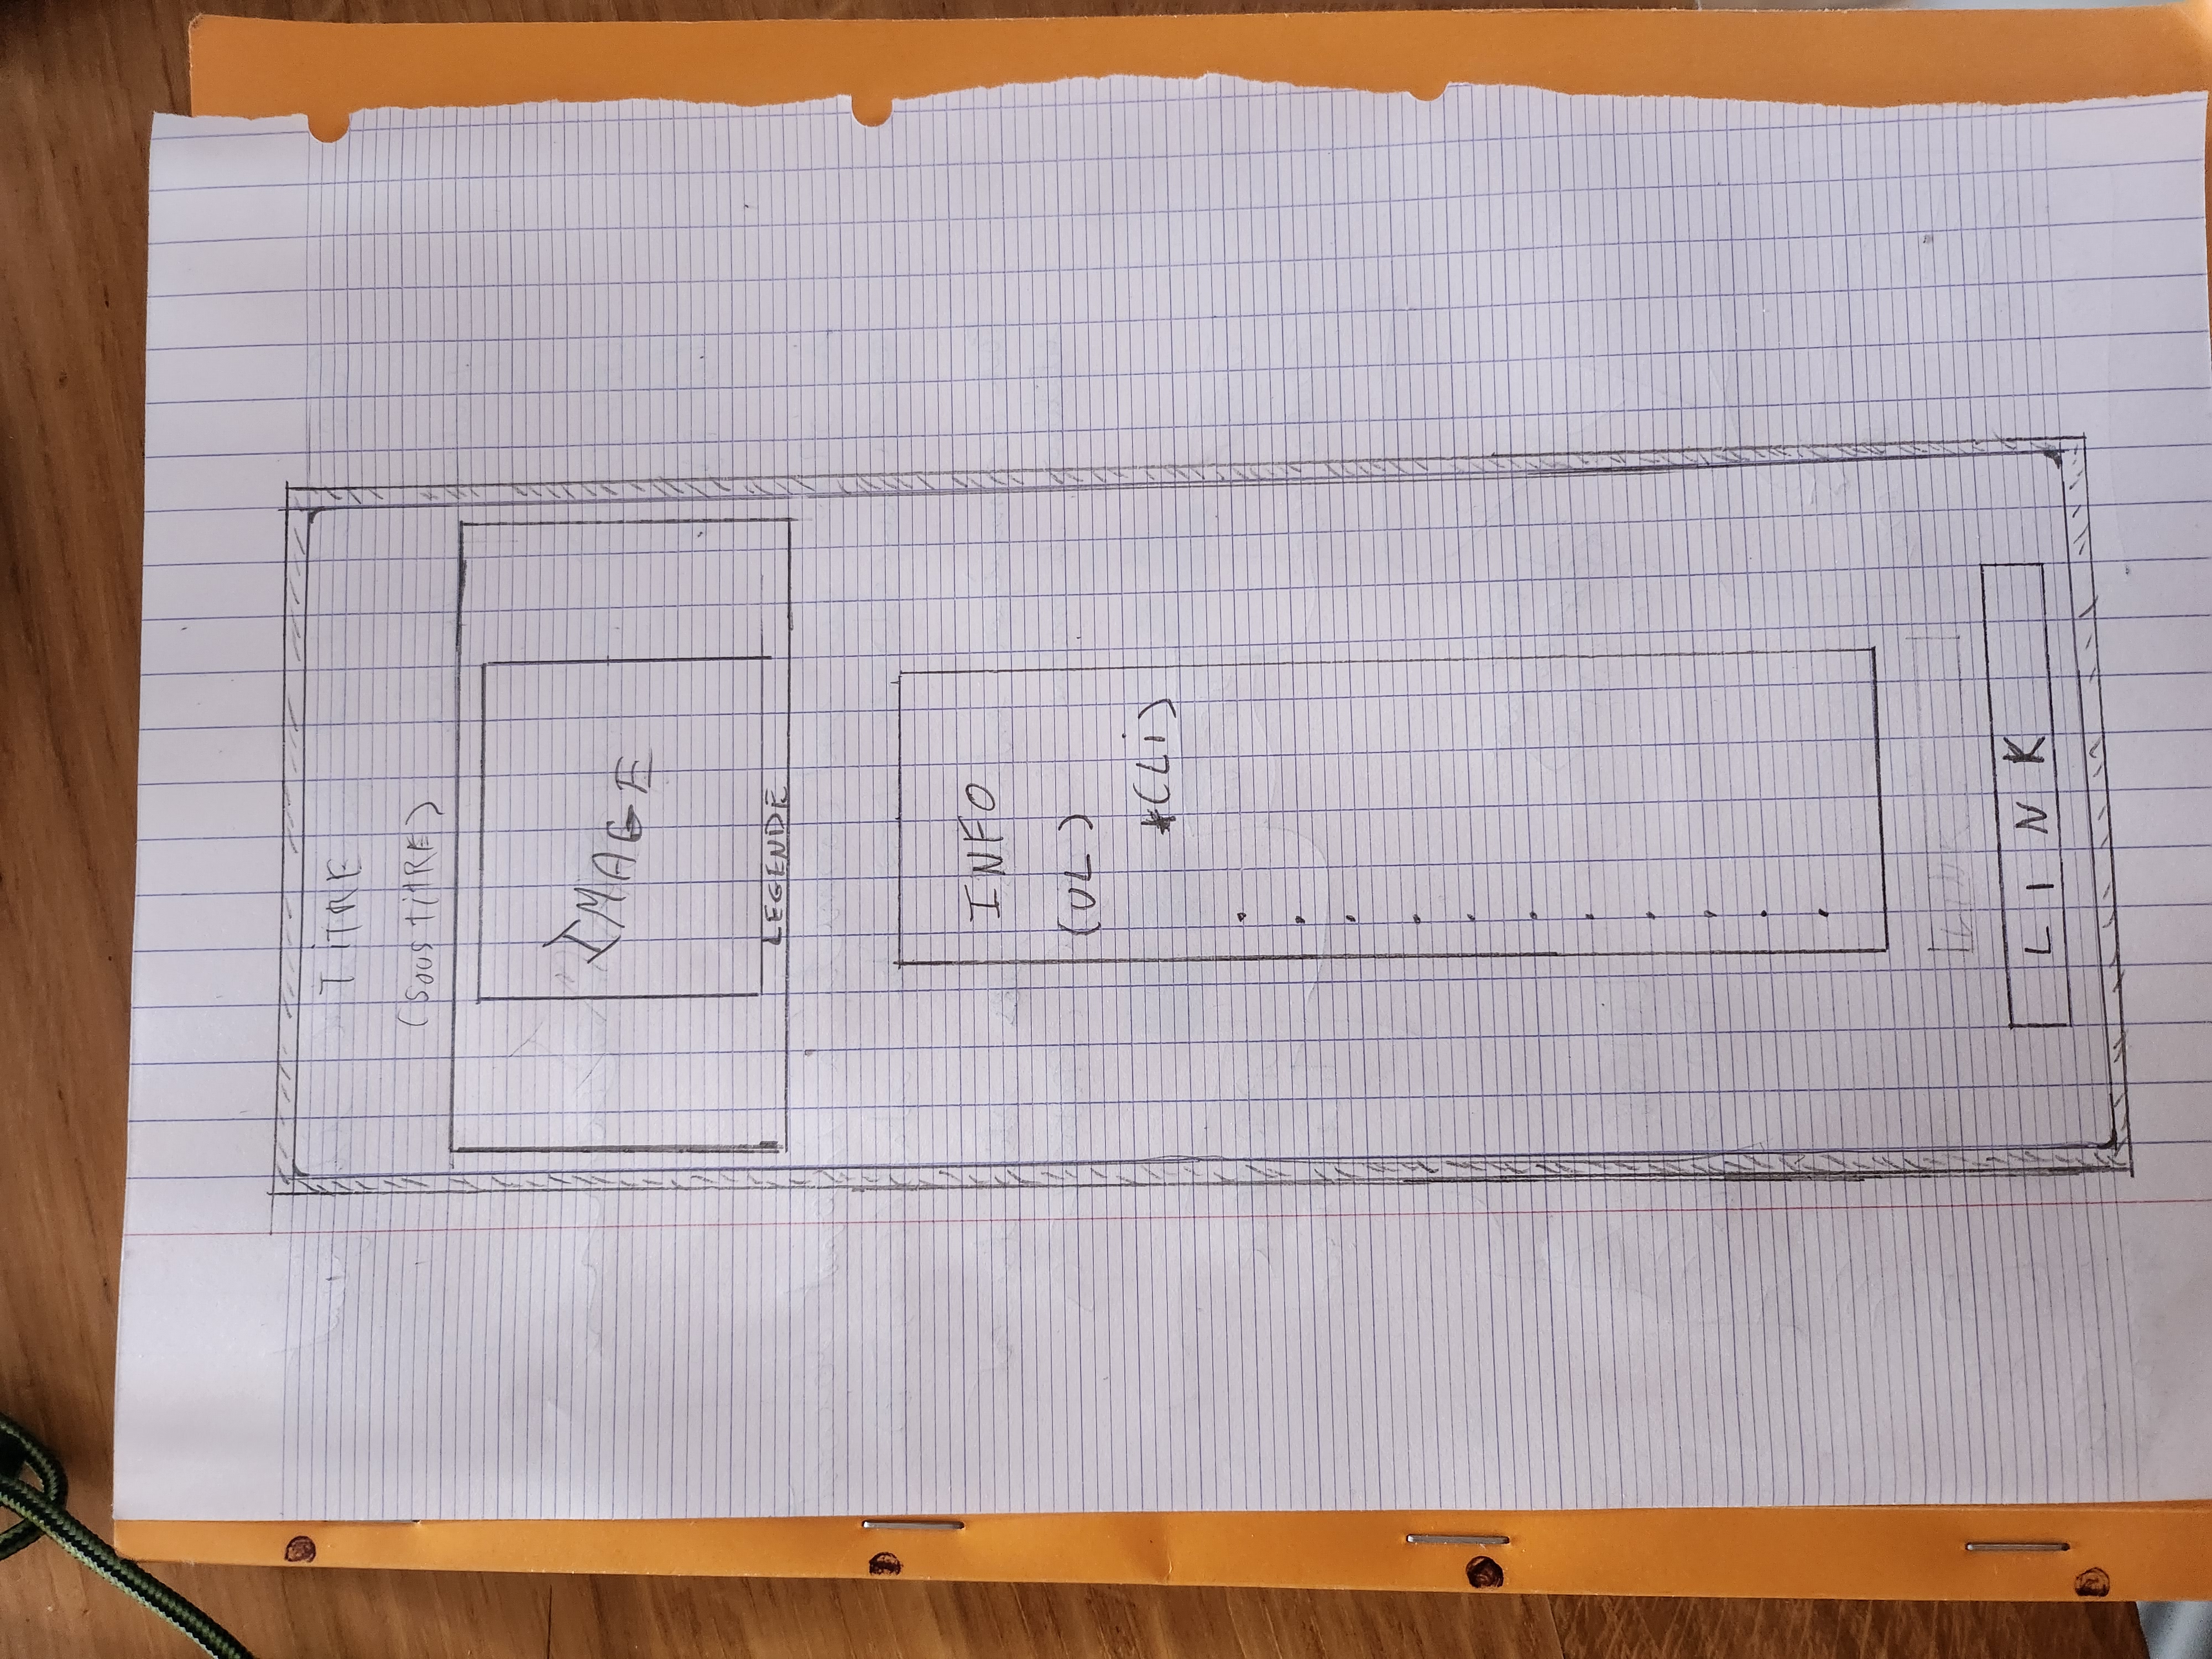 TiTRE
(sous titRE)
IMAGE
LEGENDE
INFO
(UL)
*(Li)
LINK
LINK